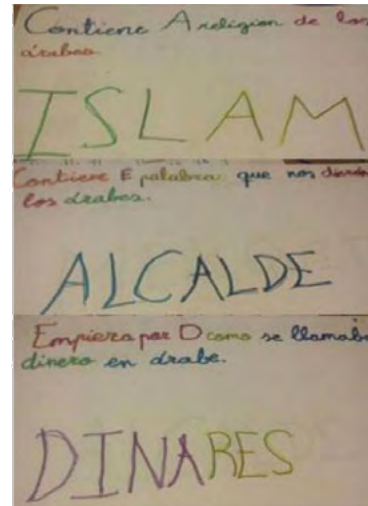 Contiene A religion de los
árabes
ISLAM
Contiene E palabra que nos dieron
los árabes.
ALCALDE
Empieza por D como se llamaba
dinero en árabe.
DINARES